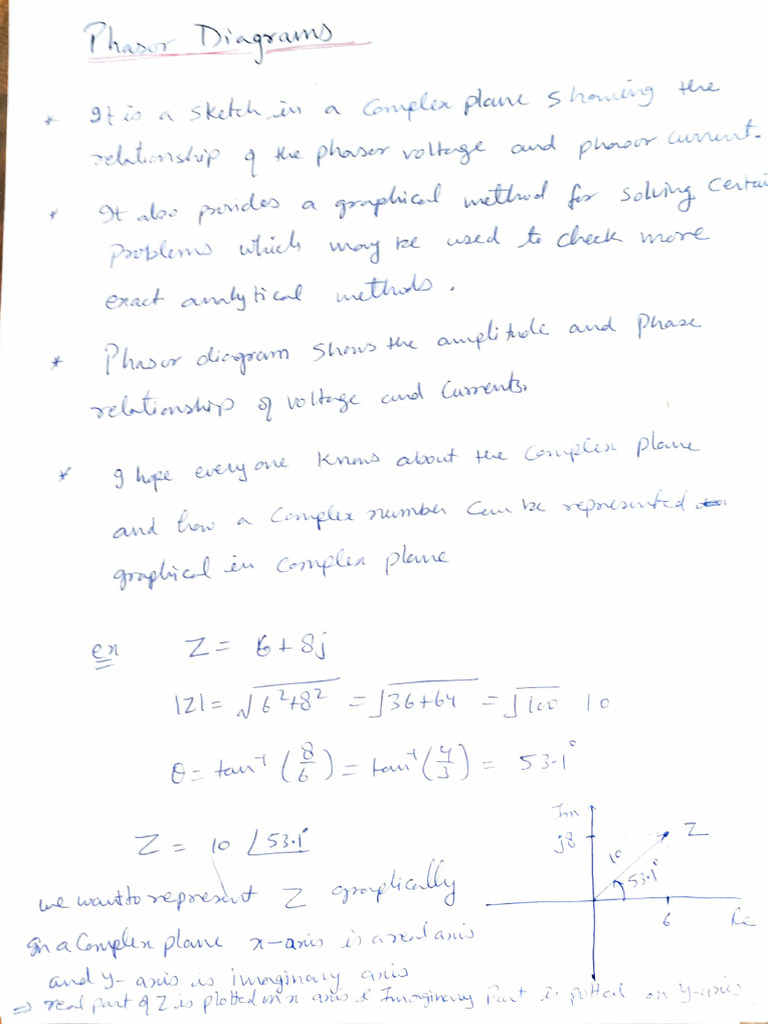 Phasor Diagrams
* It is a sketch in a complex plane showing the
relationship of the phasor voltage and phasor current.
* It also provides a graphical method for solving certai
problems which may be used to check more
exact analytical methods.
* Phasor diagram shows the amplitude and phase
relationship of voltage and currents.
* I hope everyone knows about the complex plane
and how a complex number can be represented
graphical in complex plane
ex Z = 6+8j
|Z| = √6²+8² = √36+64 = √100 10
θ = tan⁻¹ (8/6) = tan⁻¹ (4/3) = 53.1°
Z = 10 ∠53.1°
we want to represent Z graphically
In a complex plane x-axis is a real axis
and y-axis is imaginary axis
⇒ real part of Z is plotted on x-axis & Imaginary Part is plotted on y-axis
Im
j8
Z
10
53.1°
6
Re